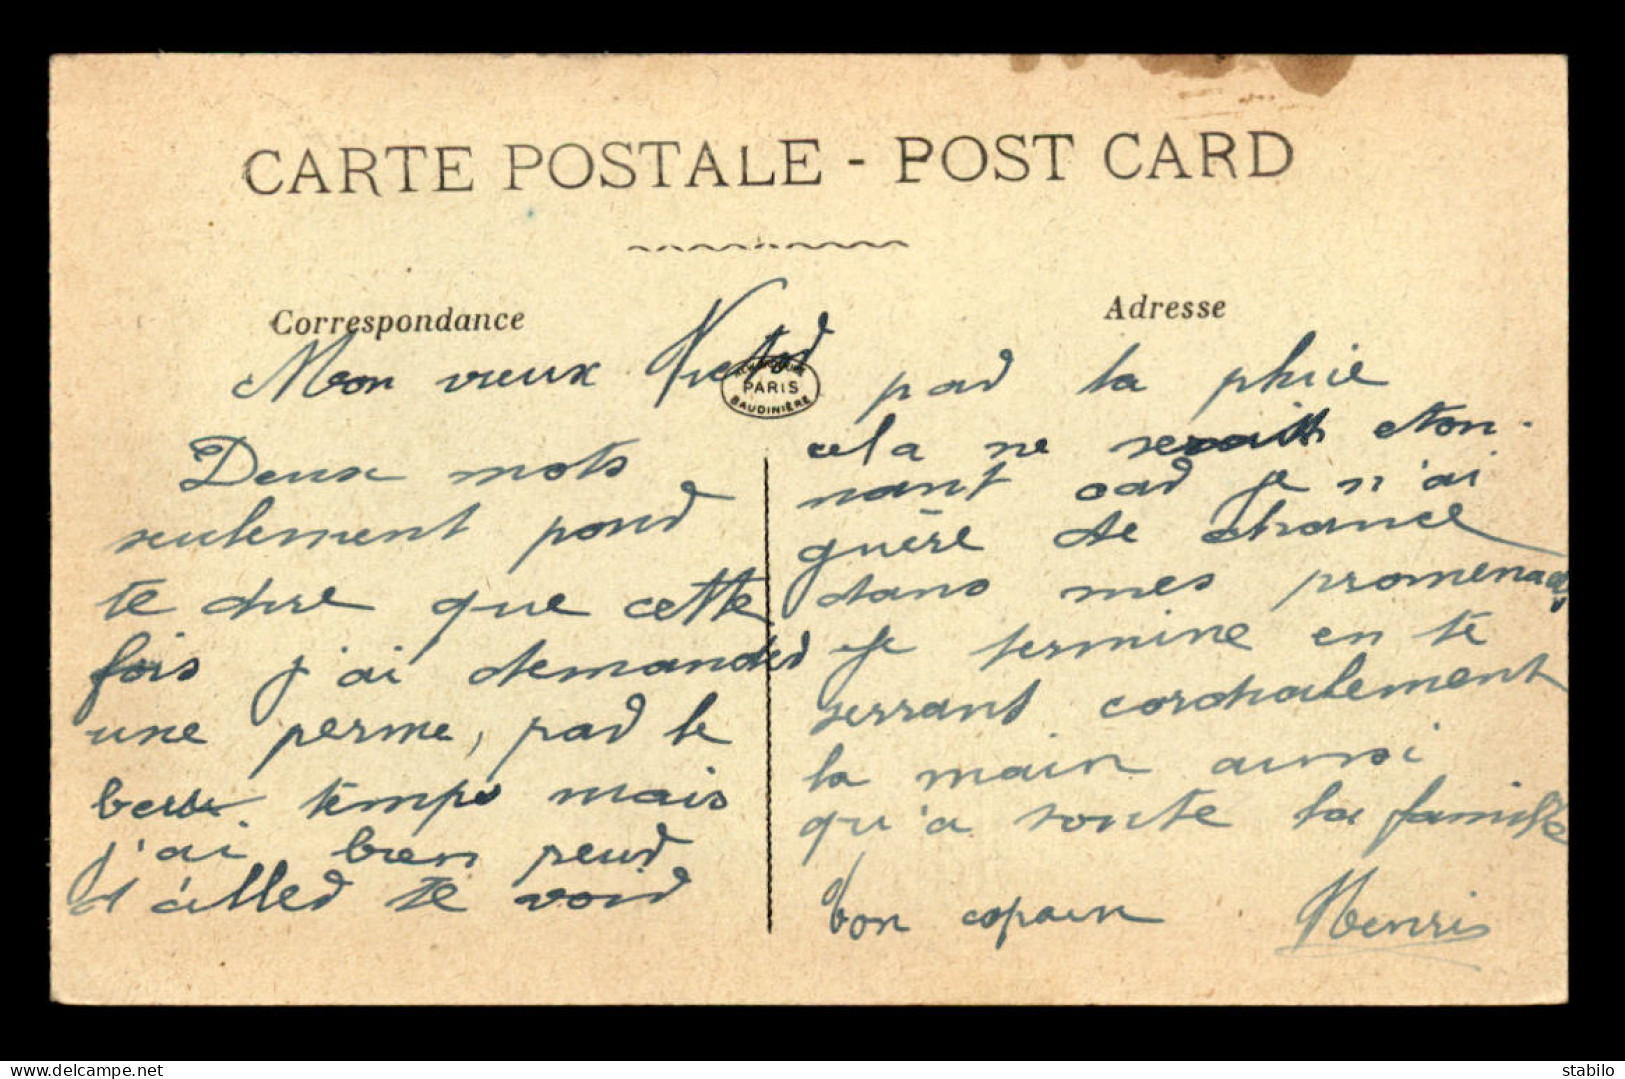 CARTE POSTALE - POST CARD
Correspondance
Mon vieux Victor
PARIS
BAUDINIÈRE
Deux mots
seulement pour
te dire que cette
fois j'ai demander
une perme, par le
beau temps mais
j'ai bien peur
d'aller te voir
Adresse
par la pluie
cela ne serait eton-
nant car je n'ai
guère de chance
dans mes promenades
Je termine en te
serrant cordialement
la main aussi
qu'a toute la famille
copain Henri
delcampe.net
stabilo